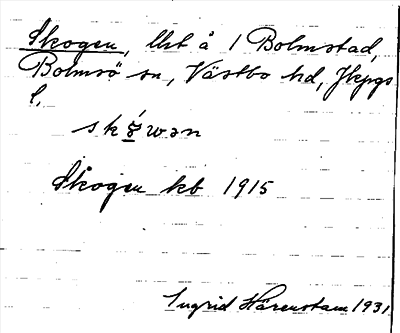 Skogen, lht å 1 Bolmstad,
Bolmsö sn, Västbo hd, Jkpgs
l.
skǿwən
Skogen kb 1915
Ingrid Härenstam 1931